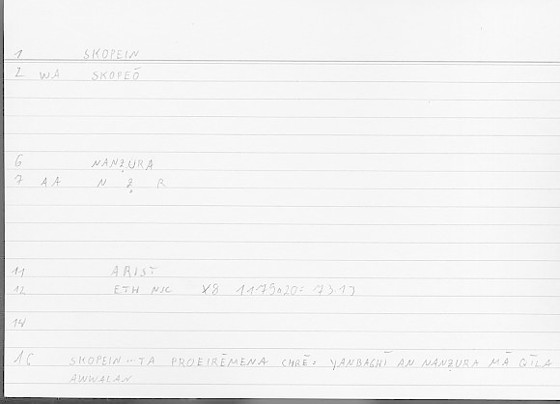 1 SKOPEIN
2 WA SKOPEŌ
6 NANẒURA
7 AA N Ẓ R
11 ARIST
12 ETH NIC X8 1179a20: 7313
14
16 SKOPEIN.. TA PROEIRĒMENA CHRĒ: YANBAGHĪ AN NANẒURA MĀ QĪLA
AWWALAN